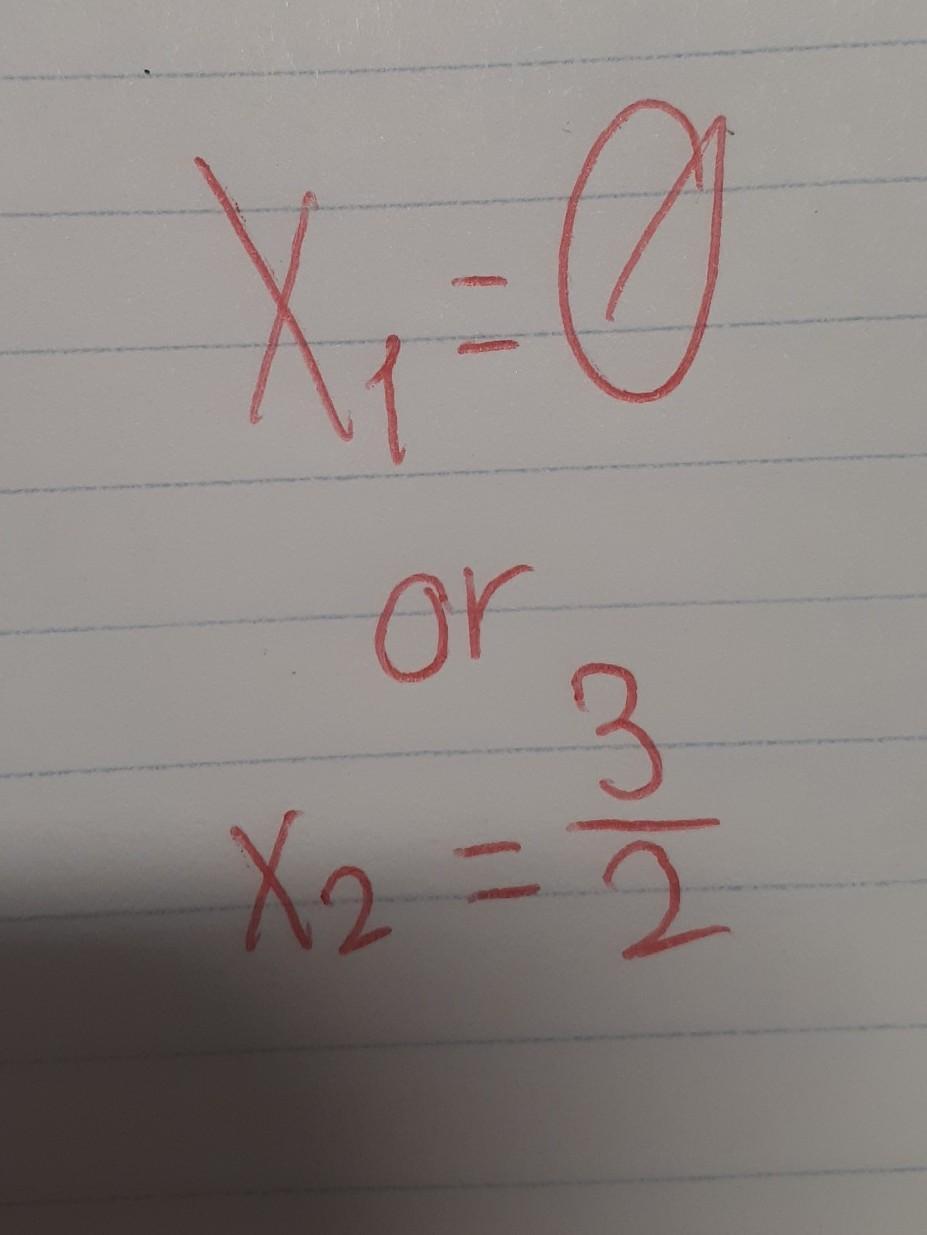 X₁ = 0
or
x₂ = 3/2